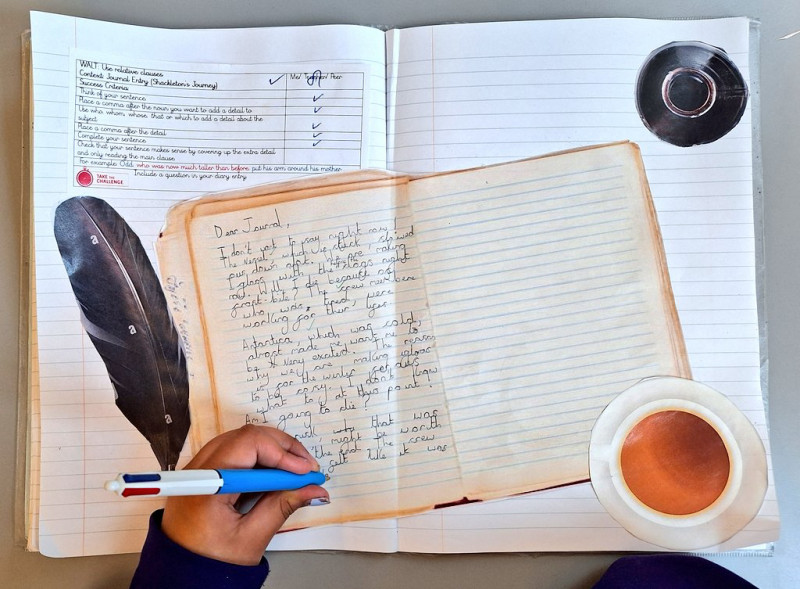 WALT: Use relative clauses
Context: Journal Entry (Shackleton's Journey)
Me/ Teacher/ Peer
Success Criteria:
Think of your sentence.
Place a comma after the noun you want to add a detail to
Use who, whom, whose, that or which to add a detail about the
subject
Place a comma after the detail
Complete your sentence.
Check that your sentence makes sense by covering up the extra detail
and only reading the main clause
For example: Odd, who was now much taller than before, put his arm around his mother.
TAKE THE
CHALLENGE
Include a question in your diary entry
Dear Journal,
I don't what to say right now!
The vessel, which is stuck,
our down
Igloos with the dogs right
now. Will I die because of
frost bite? The crew members
who was tired, were
working for their
Antartica, which was cold,
almost made me want me to
be very excited. The reason
why we are making igloos
is for the winter
to be cosy. I don't know
what to say at this point!
Am I going to die?
that was
might be worth
the end. The crew
felt like it was